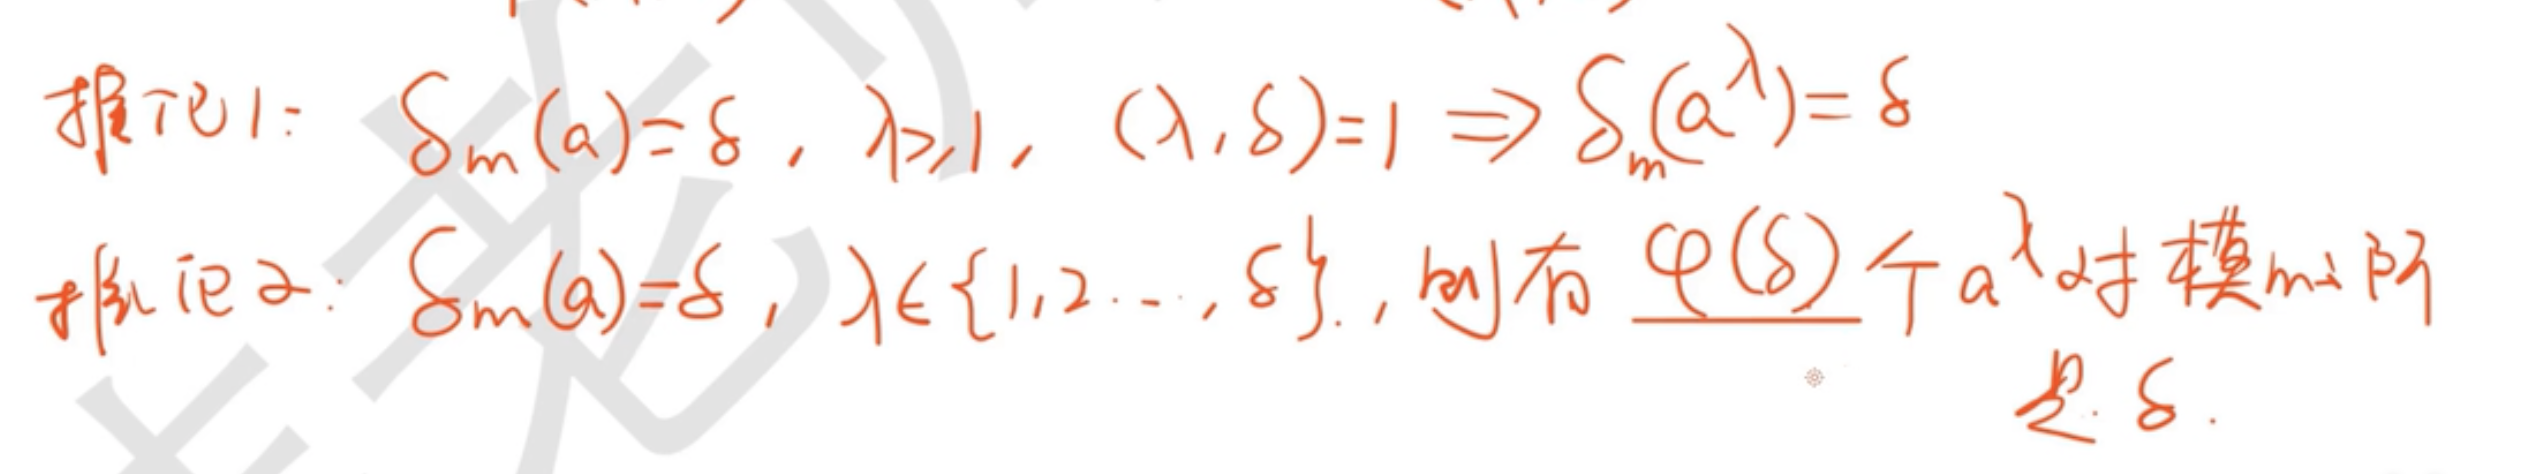 推论1: δₘ(a)=δ, λ≥1, (λ,δ)=1 ⇒ δₘ(a^λ)=δ
推论2: δₘ(a)=δ, λ∈{1,2…,δ}, 则有 φ(δ) 个 a^λ 对模m之阶
是δ.